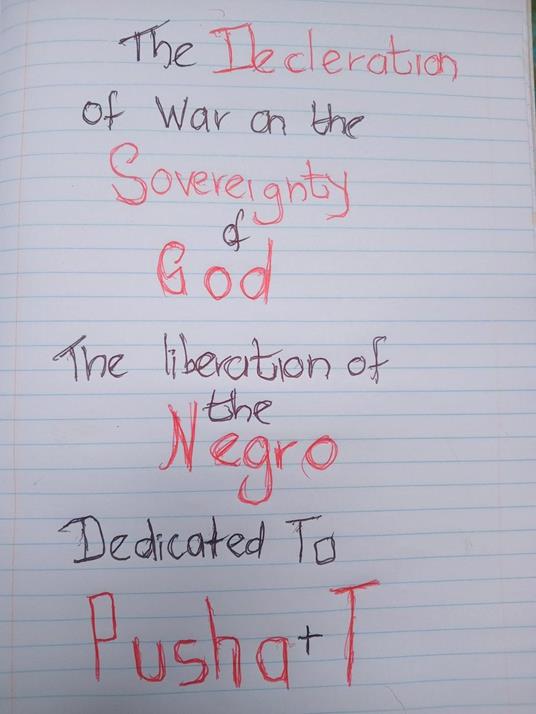 The Decleration
of War on the
Sovereignty
of
God
The liberation of
the
Negro
Dedicated To
Pusha+T